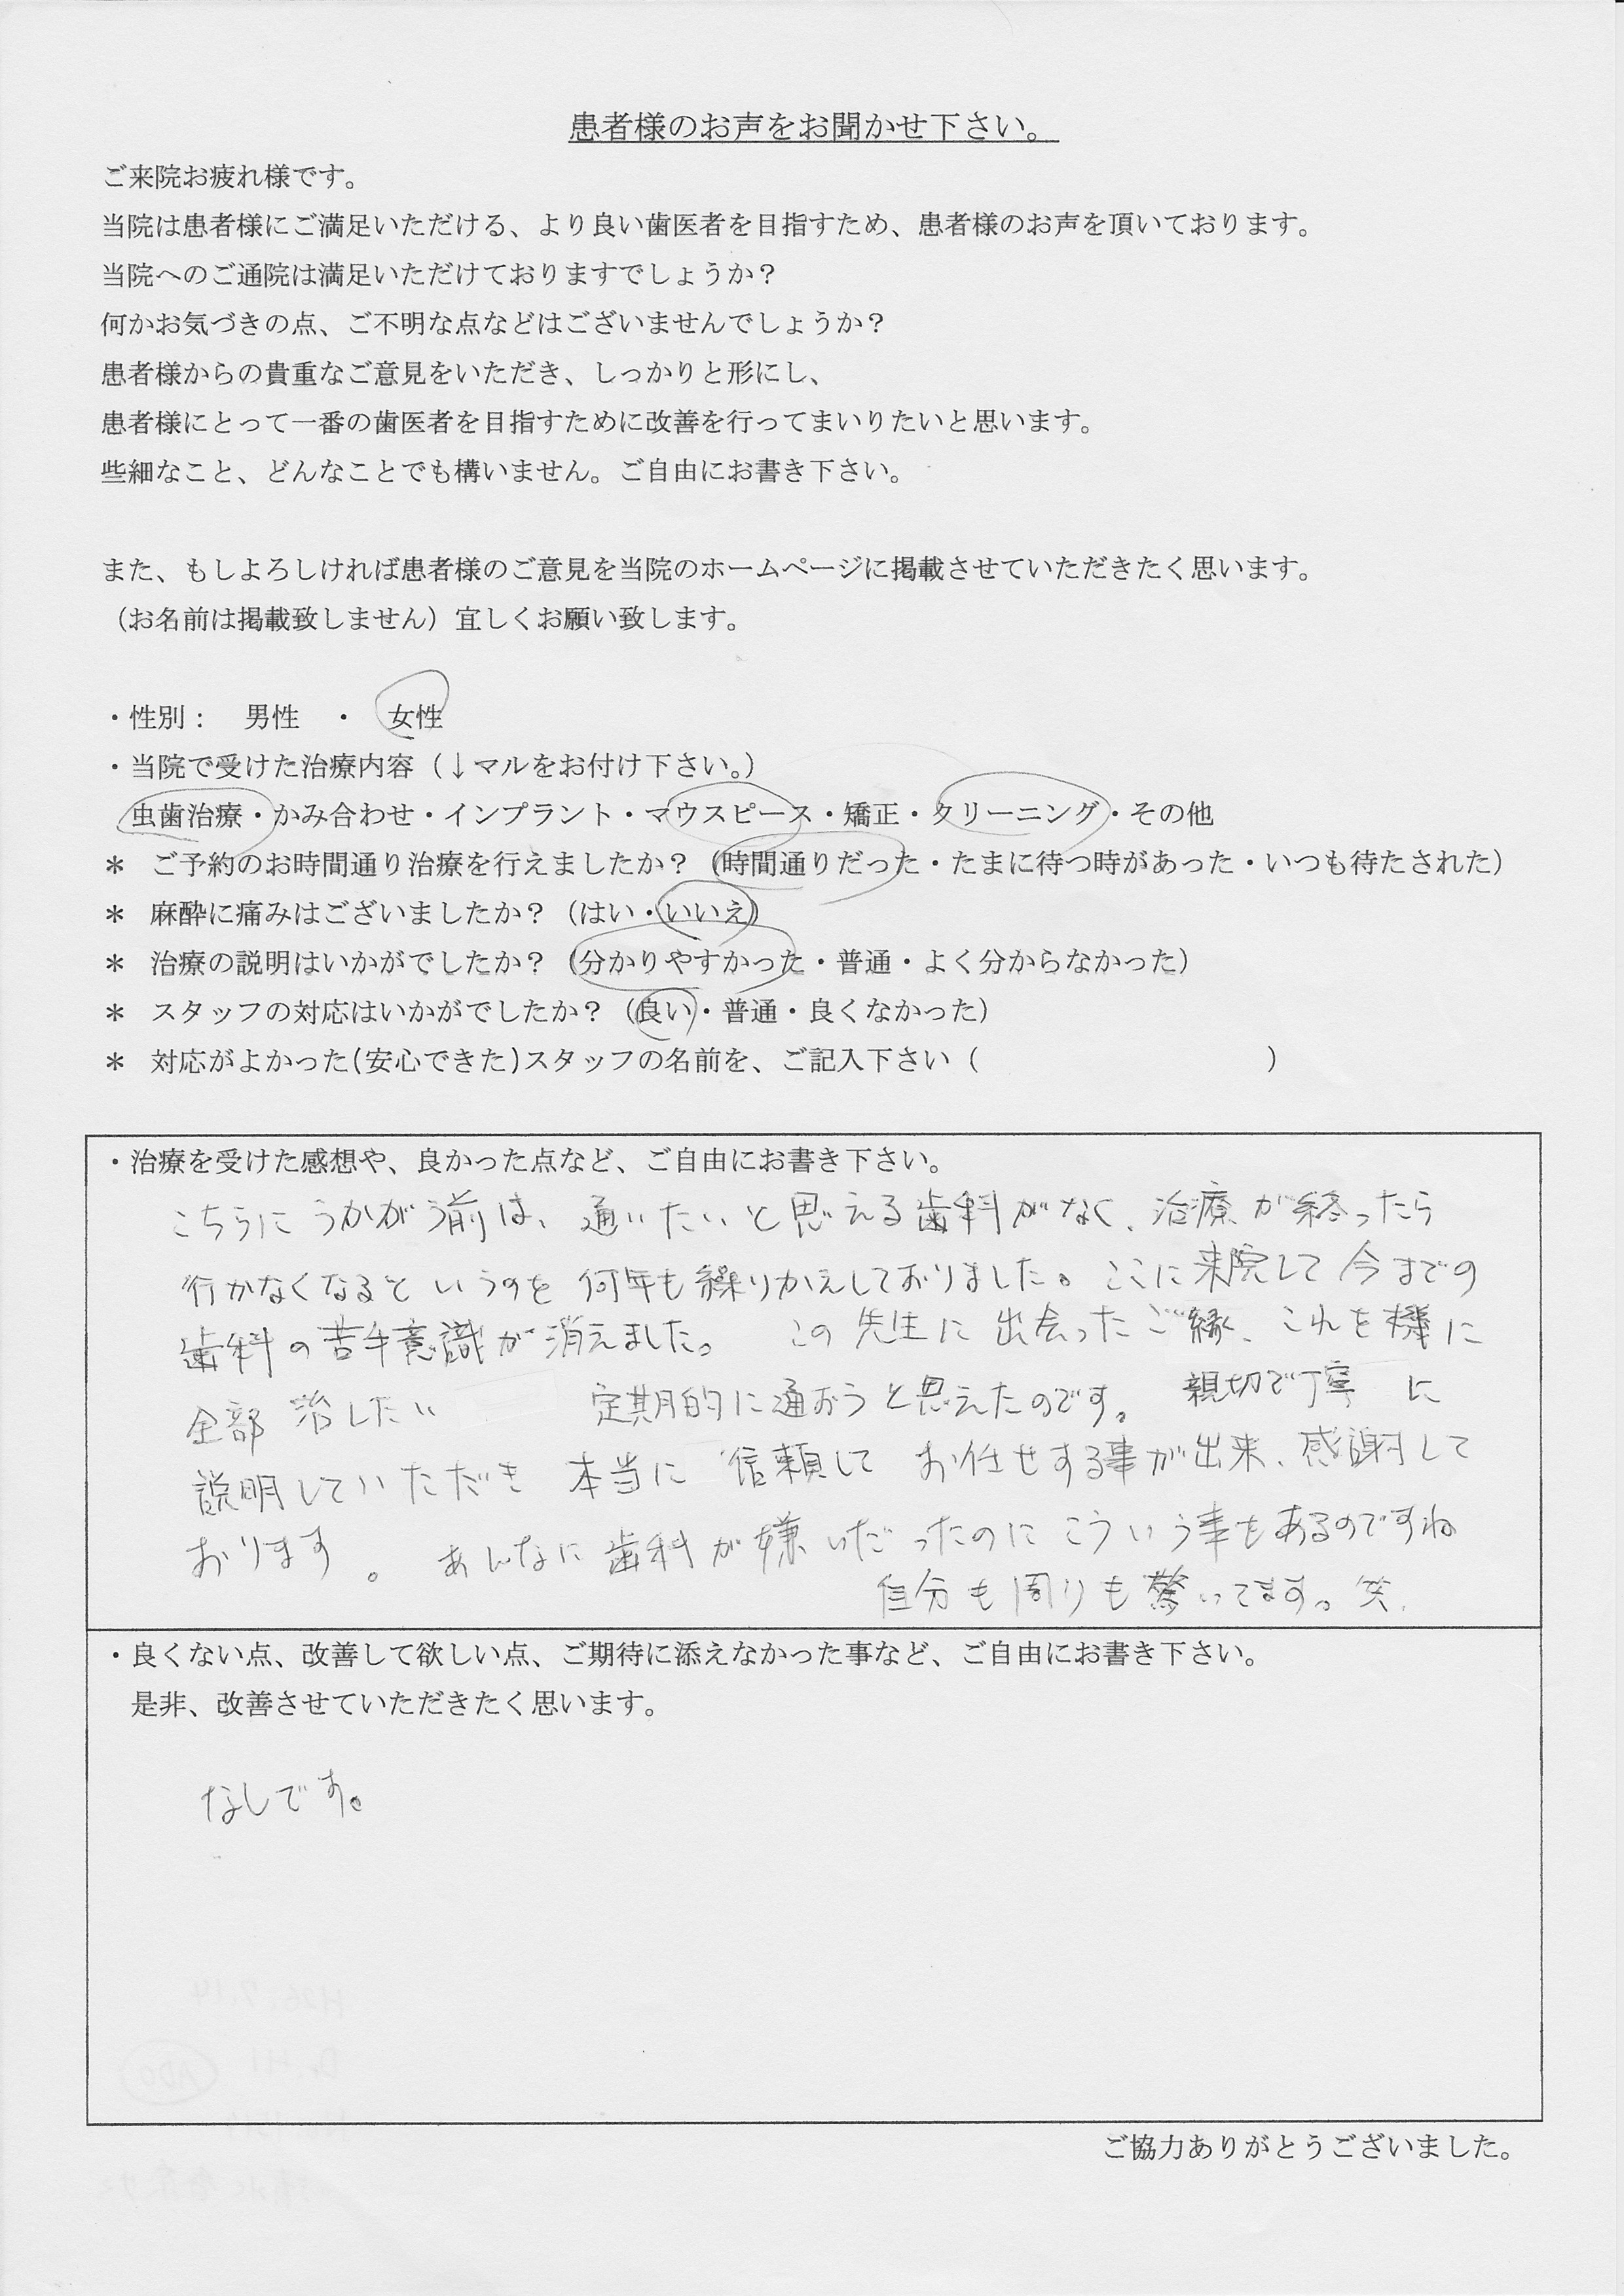 患者様のお声をお聞かせ下さい。
ご来院お疲れ様です。
当院は患者様にご満足いただける、より良い歯医者を目指すため、患者様のお声を頂いております。
当院へのご通院は満足いただけておりますでしょうか？
何かお気づきの点、ご不明な点などはございませんでしょうか？
患者様からの貴重なご意見をいただき、しっかりと形にし、
患者様にとって一番の歯医者を目指すために改善を行ってまいりたいと思います。
些細なこと、どんなことでも構いません。ご自由にお書き下さい。
また、もしよろしければ患者様のご意見を当院のホームページに掲載させていただきたく思います。
（お名前は掲載致しません）宜しくお願い致します。
・性別： 男性 ・ 女性
・当院で受けた治療内容（↓マルをお付け下さい。）
虫歯治療・かみ合わせ・インプラント・マウスピース・矯正・クリーニング・その他
＊ ご予約のお時間通り治療を行えましたか？（時間通りだった・たまに待つ時があった・いつも待たされた）
＊ 麻酔に痛みはございましたか？（はい・いいえ）
＊ 治療の説明はいかがでしたか？（分かりやすかった・普通・よく分からなかった）
＊ スタッフの対応はいかがでしたか？（良い・普通・良くなかった）
＊ 対応がよかった(安心できた)スタッフの名前を、ご記入下さい（ ）
・治療を受けた感想や、良かった点など、ご自由にお書き下さい。
こちらにうかがう前は、通いたいと思える歯科がなく、治療が終ったら
行かなくなるというのを何年も繰りかえしておりました。ここに来院して今までの
歯科の苦手意識が消えました。 この先生に出会ったご縁、これを機に
全部治したい 定期的に通おうと思えたのです。 親切で丁寧に
説明していただき本当に信頼してお任せする事が出来、感謝して
おります。 あんなに歯科が嫌いだったのにこういう事もあるのですね
自分も周りも驚いてます。笑.
・良くない点、改善して欲しい点、ご期待に添えなかった事など、ご自由にお書き下さい。
是非、改善させていただきたく思います。
なしです。
ご協力ありがとうございました。